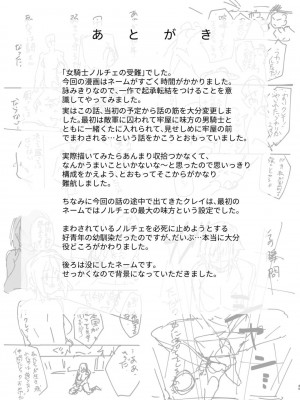 あとがき
「女騎士ノルチェの受難」でした。
今回の漫画はネームがすごく時間がかかりました。
詠みきりなので、一作で起承転結をつけることを意
識してやってみました。
実はこの話、当初の予定から話の筋を大分変更しま
した。最初は敵軍に囚われて牢屋に味方の男騎士と
ともに一緒くたに入れられて、見せしめに牢屋の前
でまわされる…という話をかこうとおもっていました。
実際描いてみたらあんまり収拾つかなくて、
なんかうまいこといかないな~と思ったので思いっきり
構成をかえよう、とおもってそこからがかなり
難航しました。
ちなみに今回の話の途中で出てきたクレイは、最初の
ネームではノルチェの最大の味方という設定でした。
まわされているノルチェを必死に止めようとする
好青年の幼馴染だったのですが、だいぶ…本当に大分
役どころがかわりました。
後ろは没にしたネームです。
せっかくなので背景になっていただきました。